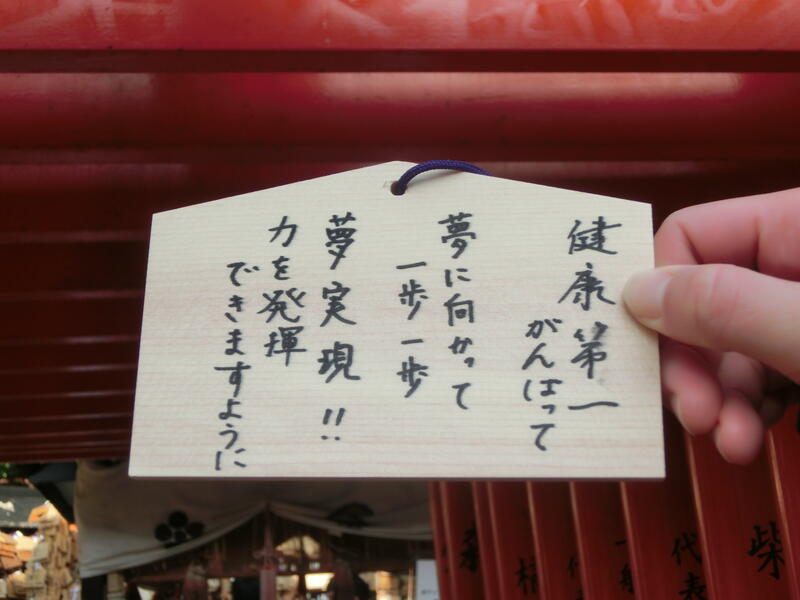 健康第一
がんばって
夢に向かって
一歩一歩
夢実現!!
力を発揮
できますように
代表
柴